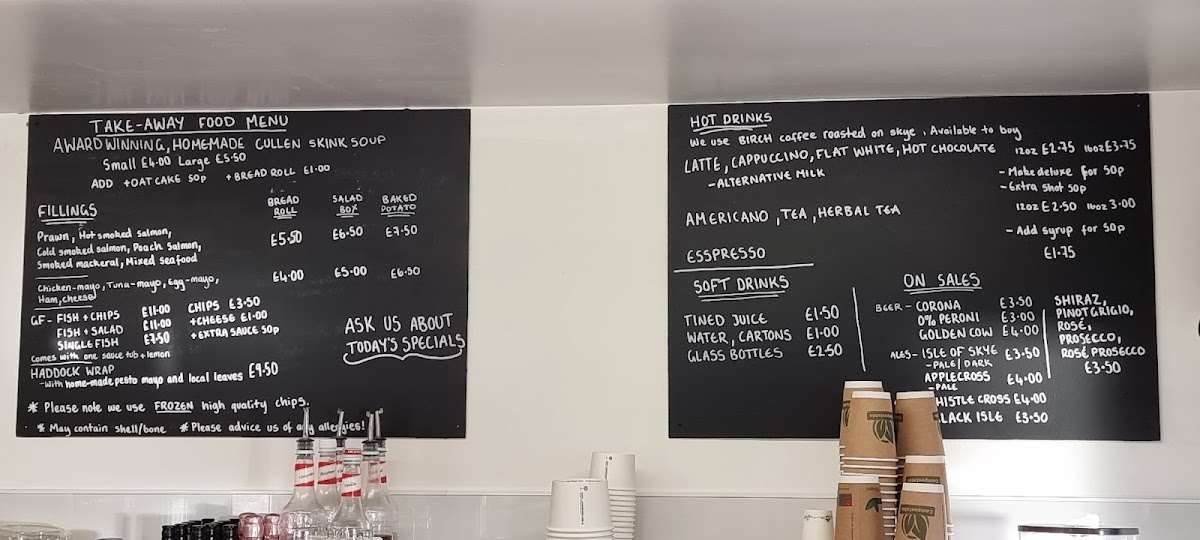 TAKE-AWAY FOOD MENU
AWARD WINNING, HOMEMADE CULLEN SKINK SOUP
Small £4.00 Large £5.50
ADD +OATCAKE 50p +BREAD ROLL £1.00
FILLINGS
BREAD ROLL
SALAD BOX
BAKED POTATO
Prawn, Hot smoked salmon,
Cold smoked salmon, Poach Salmon,
Smoked mackeral, Mixed seafood
£5.50 £6.50 £7.50
Chicken-mayo, Tuna-mayo, Egg-mayo,
Ham, cheese
£4.00 £5.00 £6.50
GF- FISH + CHIPS £11.00 CHIPS £3.50
FISH + SALAD £11.00 +CHEESE £1.00
SINGLE FISH £7.50 +EXTRA SAUCE 50p
Comes with one sauce tub + lemon
HADDOCK WRAP
-With home-made pesto mayo and local leaves £9.50
ASK US ABOUT
TODAY'S SPECIALS
* Please note we use FROZEN high quality chips.
* May contain shell/bone * Please advice us of any allergies!
HOT DRINKS
We use BIRCH coffee roasted on skye. Available to buy
LATTE, CAPPUCCINO, FLAT WHITE, HOT CHOCOLATE 12oz £2.75 16oz £3.75
-ALTERNATIVE MILK
- Make deluxe for 50p
- Extra shot 50p
AMERICANO, TEA, HERBAL TEA 12oz £2.50 16oz 3.00
- Add syrup for 50p
ESSPRESSO £1.75
SOFT DRINKS
TINED JUICE £1.50
WATER, CARTONS £1.00
GLASS BOTTLES £2.50
ON SALES
BEER - CORONA £3.50
0% PERONI £3.00
GOLDEN COW £4.00
ALES- ISLE OF SKYE £3.50
- PALE/DARK
APPLECROSS £4.00
- PALE
HISTLE CROSS £4.00
LACK ISLE £3.50
SHIRAZ,
PINOT GRIGIO,
ROSÉ,
PROSECCO,
ROSÉ PROSECCO
£3.50
Compostable